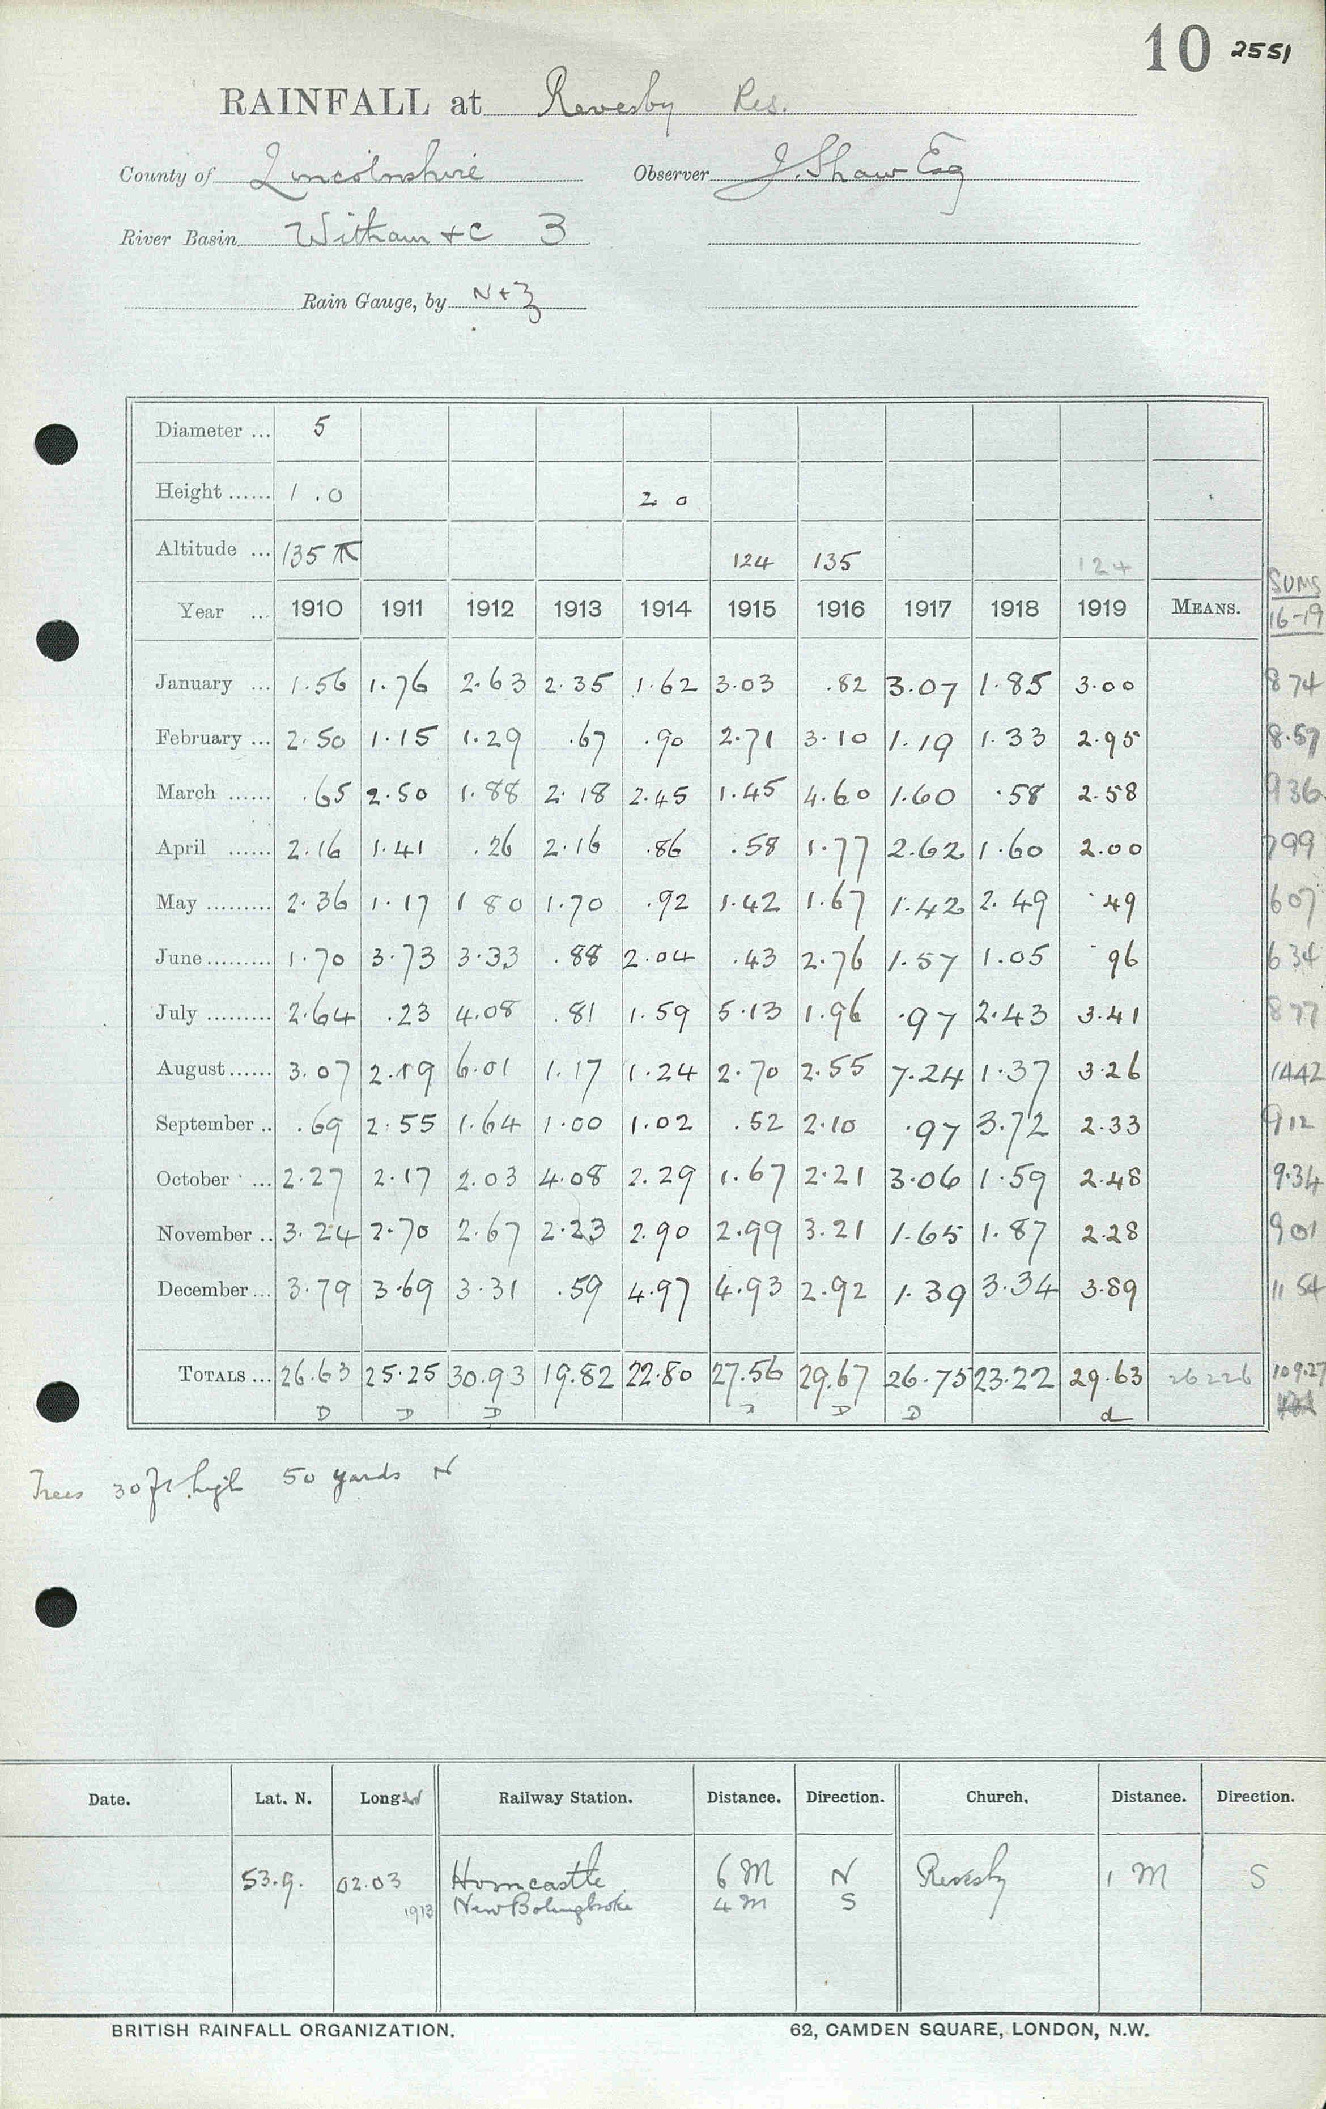 10 2551
RAINFALL at Revesby Res.
County of Lincolnshire Observer J. Shaw Esq
River Basin Witham + C 3
Rain Gauge, by N+Z
Diameter ... 5
Height ...... 1.0 2 0
Altitude ... 135 124 135 124
SUMS
Year ... 1910 1911 1912 1913 1914 1915 1916 1917 1918 1919 MEANS. 16-19
January ... 1.56 1.76 2.63 2.35 1.62 3.03 .82 3.07 1.85 3.00 874
February ... 2.50 1.15 1.29 .67 .90 2.71 3.10 1.19 1.33 2.95 8.57
March ...... .65 2.50 1.88 2.18 2.45 1.45 4.60 1.60 .58 2.58 936
April ...... 2.16 1.41 .26 2.16 .86 .58 1.77 2.62 1.60 2.00 799
May ......... 2.36 1.17 1 80 1.70 .92 1.42 1.67 1.42 2.49 .49 607
June ......... 1.70 3.73 3.33 .88 2.04 .43 2.76 1.57 1.05 .96 634
July ......... 2.64 .23 4.08 .81 1.59 5.13 1.96 .97 2.43 3.41 877
August ...... 3.07 2.19 6.01 1.17 1.24 2.70 2.55 7.24 1.37 3.26 1442
September .. .69 2.55 1.64 1.00 1.02 .52 2.10 .97 3.72 2.33 912
October ... 2.27 2.17 2.03 4.08 2.29 1.67 2.21 3.06 1.59 2.48 9.34
November .. 3.24 2.70 2.67 2.23 2.90 2.99 3.21 1.65 1.87 2.28 901
December ... 3.79 3.69 3.31 .59 4.97 4.93 2.92 1.39 3.34 3.89 11 54
TOTALS ... 26.63 25.25 30.93 19.82 22.80 27.56 29.67 26.75 23.22 29.63 26226 109.27
D D D D D d
Trees 30 ft high 50 yards N
Date. Lat. N. Long W Railway Station. Distance. Direction. Church. Distance. Direction.
53.9. 02.03 Horncastle 6 M N Revesby 1 M S
1913 New Bolingbroke 4 M S
BRITISH RAINFALL ORGANIZATION. 62, CAMDEN SQUARE, LONDON, N.W.